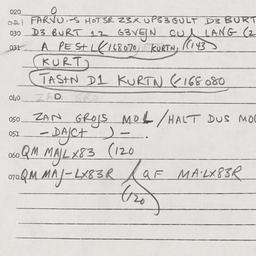 020 O
021 FARVU-S HOTSR Z3X UPG3GULT D3 BURT
030 D3 BURT 12 G3VEJN CU LANG (2
031 A PEST L (168070, KURTN, (143
KURT)
TASTN D1 KURTN (168080
040 D
050 ZAN GROJS MOL / HALT DUS MO
052 - DAJCT ) - .
060 QM MAJLX83 (120
070 QM MAJ-LX83R / QF MA-LX83R
(120